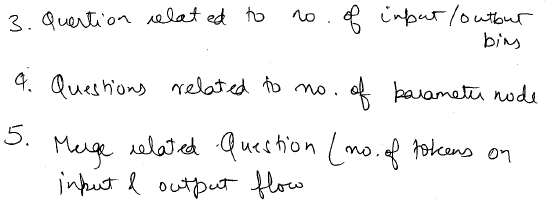 3. Question related to no. of input/output
bins
4. Questions related to no. of parameter node
5. Merge related Question (no. of tokens on
input & output flow